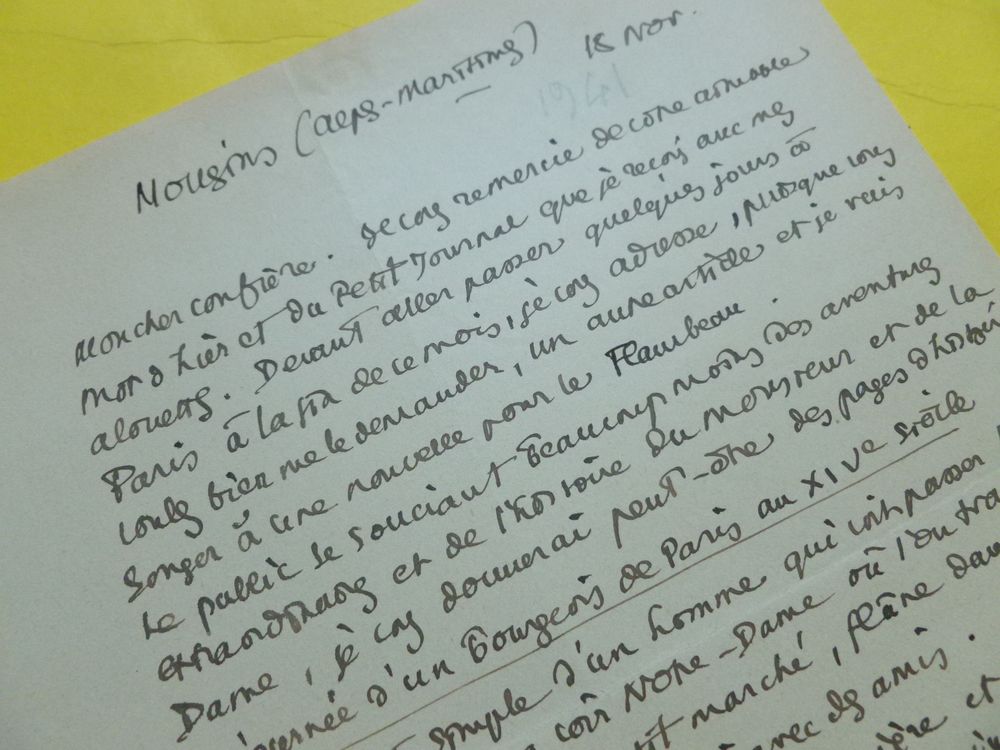 Mougins (Alpes-Maritimes) 18 Nov.
1941
Mon cher confrère. Je vous remercie de votre aimable
mot d'hier et du Petit Journal que je reçois avec mes
. Devant aller passer quelques jours à
Paris à la fin de ce mois, je vous adresse, puisque vous
voulez bien me le demander, un article et je vais
songer à une nouvelle pour le Flambeau.
Le public se souciant beaucoup moins des aventures
extraordinaires et de l'histoire du monsieur et de la
Dame, je vous donnerai peut-être des pages d'histoire
journée d'un Bourgeois de Paris au XIVe siècle
simple d'un homme qui voit passer
voir Notre-Dame où l'on tra
marché, flâne dan
avec des amis.
et